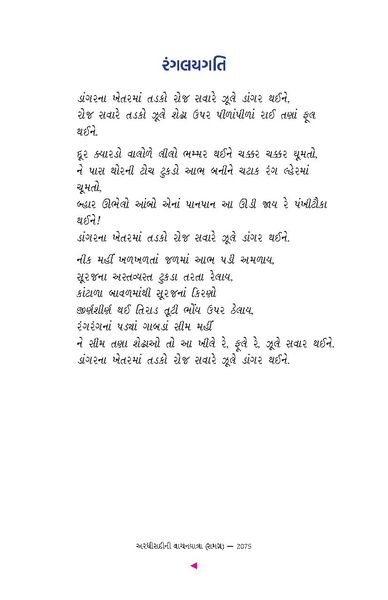 રંગલયગતિ
ડાંગરના ખેતરમાં તડકો રોજ સવારે ઝૂલે ડાંગર થઈને,
રોજ સવારે તડકો ઝૂલે શેઢા ઉપર પીળાંપીળાં રાઈ તણાં ફૂલ
થઈને.
દૂર ક્યારડો વાલોળે લીલો ભમ્મર થઈને ચક્કર ચક્કર ઘૂમતો,
ને પાસ થોરની ટોચ ટુકડો આભ બનીને ચટાક રંગ લ્હેરમાં
ઘૂમતો,
બ્હાર ઊભેલો આંબો એનાં પાનપાન આ ઊડી જાય રે પંખીટૌકા
થઈને!
ડાંગરના ખેતરમાં તડકો રોજ સવારે ઝૂલે ડાંગર થઈને.
નીક મહીં ખળખળતાં જળમાં આભ પડી અમળાય,
સૂરજના અસ્તવ્યસ્ત ટુકડા તરતા રેલાય,
કાંટાળા બાવળમાંથી સૂરજનાં કિરણો
જીર્ણશીર્ણ થઈ તિરાડ તૂટી ભોંય ઉપર ઠેલાય,
રંગરંગનાં પડ્યાં ગાબડાં સીમ મહીં
ને સીમ તણા શેઢાઓ તો આ ખીલે રે, ફૂલે રે, ઝૂલે સવાર થઈને.
ડાંગરના ખેતરમાં તડકો રોજ સવારે ઝૂલે ડાંગર થઈને.
અરધીસદીની વાચનયાત્રા (સમગ્ર) — 2075